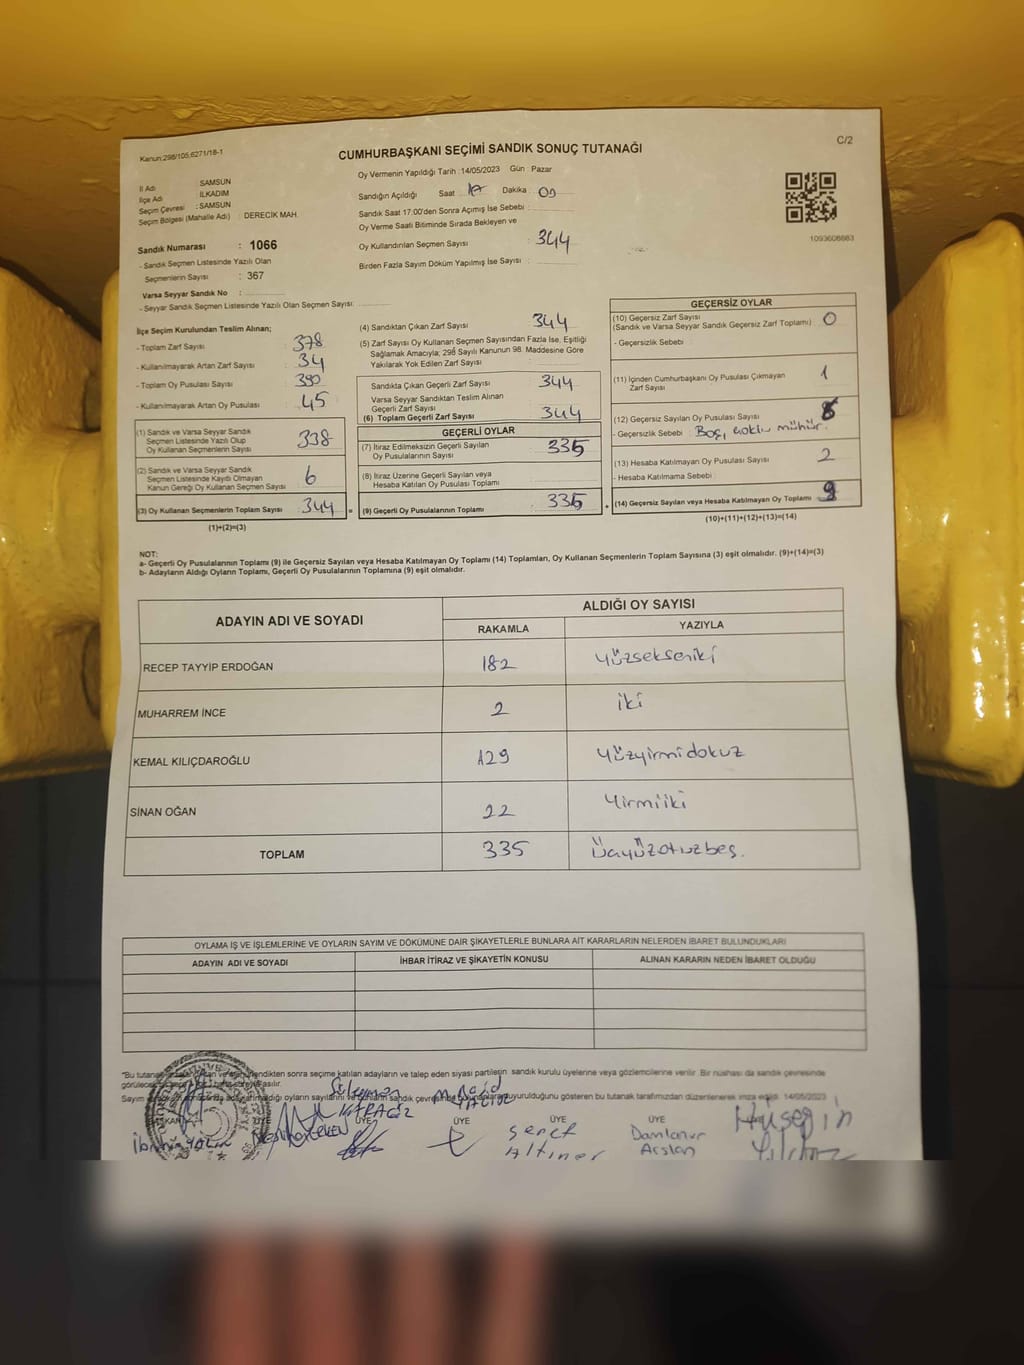 Kanun:298/105;6271/18-1
C/2
CUMHURBAŞKANI SEÇİMİ SANDIK SONUÇ TUTANAĞI
İl Adı : SAMSUN
İlçe Adı : İLKADIM
Seçim Çevresi : SAMSUN
Seçim Bölgesi (Mahalle Adı) : DERECİK MAH.
Sandık Numarası : 1066
- Sandık Seçmen Listesinde Yazılı Olan
Seçmenlerin Sayısı : 367
Varsa Seyyar Sandık No :
- Seyyar Sandık Seçmen Listesinde Yazılı Olan Seçmen Sayısı:
Oy Vermenin Yapıldığı Tarih : 14/05/2023 Gün : Pazar
Sandığın Açıldığı Saat Dakika
Sandık Saat 17:00'den Sonra Açımış İse Sebebi :
Oy Verme Saati Bitiminde Sırada Bekleyen ve
Oy Kullandırılan Seçmen Sayısı : 344
Birden Fazla Sayım Döküm Yapılmış İse Sayısı :
1093608663
İlçe Seçim Kurulundan Teslim Alınan;
- Toplam Zarf Sayısı : 378
- Kullanılmayarak Artan Zarf Sayısı : 34
- Toplam Oy Pusulası Sayısı : 390
- Kullanılmayarak Artan Oy Pusulası : 45
(1) Sandık ve Varsa Seyyar Sandık
Seçmen Listesinde Yazılı Olup
Oy Kullanan Seçmenlerin Sayısı 338
(2) Sandık ve Varsa Seyyar Sandık
Seçmen Listesinde Kayıtlı Olmayan
Kanun Gereği Oy Kullanan Seçmen Sayısı 6
(3) Oy Kullanan Seçmenlerin Toplam Sayısı 344 =
(1)+(2)=(3)
(4) Sandıktan Çıkan Zarf Sayısı 344
(5) Zarf Sayısı Oy Kullanan Seçmen Sayısından Fazla İse, Eşitliği
Sağlamak Amacıyla; 298 Sayılı Kanunun 98. Maddesine Göre
Yakılarak Yok Edilen Zarf Sayısı
Sandıkta Çıkan Geçerli Zarf Sayısı 344
Varsa Seyyar Sandıktan Teslim Alınan
Geçerli Zarf Sayısı
(6) Toplam Geçerli Zarf Sayısı 344
GEÇERLİ OYLAR
(7) İtiraz Edilmeksizin Geçerli Sayılan
Oy Pusulalarının Sayısı 335
(8) İtiraz Üzerine Geçerli Sayılan veya
Hesaba Katılan Oy Pusulası Toplamı
(9) Geçerli Oy Pusulalarının Toplamı 335 +
GEÇERSİZ OYLAR
(10) Geçersiz Zarf Sayısı
(Sandık ve Varsa Seyyar Sandık Geçersiz Zarf Toplamı) 0
- Geçersizlik Sebebi :
(11) İçinden Cumhurbaşkanı Oy Pusulası Çıkmayan
Zarf Sayısı 1
(12) Geçersiz Sayılan Oy Pusulası Sayısı
- Geçersizlik Sebebi : Boş, çoklu mühür.
(13) Hesaba Katılmayan Oy Pusulası Sayısı 2
- Hesaba Katılmama Sebebi :
(14) Geçersiz Sayılan veya Hesaba Katılmayan Oy Toplamı 9
(10)+(11)+(12)+(13)=(14)
NOT:
a- Geçerli Oy Pusulalarının Toplamı (9) ile Geçersiz Sayılan veya Hesaba Katılmayan Oy Toplamı (14) Toplamları, Oy Kullanan Seçmenlerin Toplam Sayısına (3) eşit olmalıdır. (9)+(14)=(3)
b- Adayların Aldığı Oyların Toplamı, Geçerli Oy Pusulalarının Toplamına (9) eşit olmalıdır.
ADAYIN ADI VE SOYADI ALDIĞI OY SAYISI
RAKAMLA YAZIYLA
RECEP TAYYİP ERDOĞAN 182 yüzsekseniki
MUHARREM İNCE 2 iki
KEMAL KILIÇDAROĞLU 129 yüzyirmidokuz
SİNAN OĞAN 22 yirmiiki
TOPLAM 335 Üçyüzotuzbeş.
OYLAMA İŞ VE İŞLEMLERİNE VE OYLARIN SAYIM VE DÖKÜMÜNE DAİR ŞİKAYETLERLE BUNLARA AİT KARARLARIN NELERDEN İBARET BULUNDUKLARI
ADAYIN ADI VE SOYADI İHBAR İTİRAZ VE ŞİKAYETİN KONUSU ALINAN KARARIN NEDEN İBARET OLDUĞU
sonra seçime katılan adayların ve talep eden siyasi partilerin sandık kurulu üyelerine veya gözlemcilerine verilir. Bir nüshası da sandık çevresinde
Süleyman KARAGÖZ
ÜYE ÜYE ÜYE ÜYE
Şeref Altıner
Damlanur Arslan
Hüseyin Yıldız